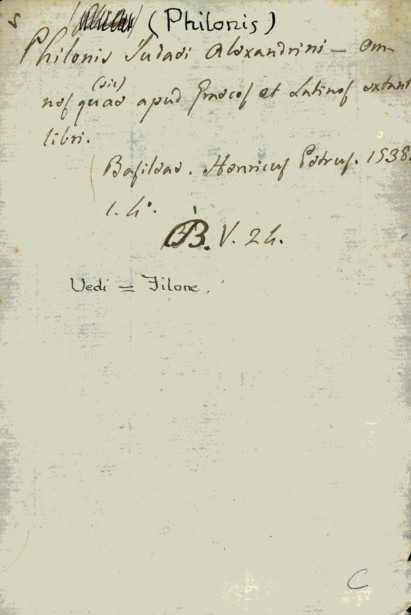 (Philonis)
Philonis Judaei Alexandrini — Om-
(sic)
nes quae apud Graecos et Latinos extant
libri.
(Basileae. Henricus Petrus. 1538.
1. 4°.
B. V. 24.
Vedi = Filone.
C